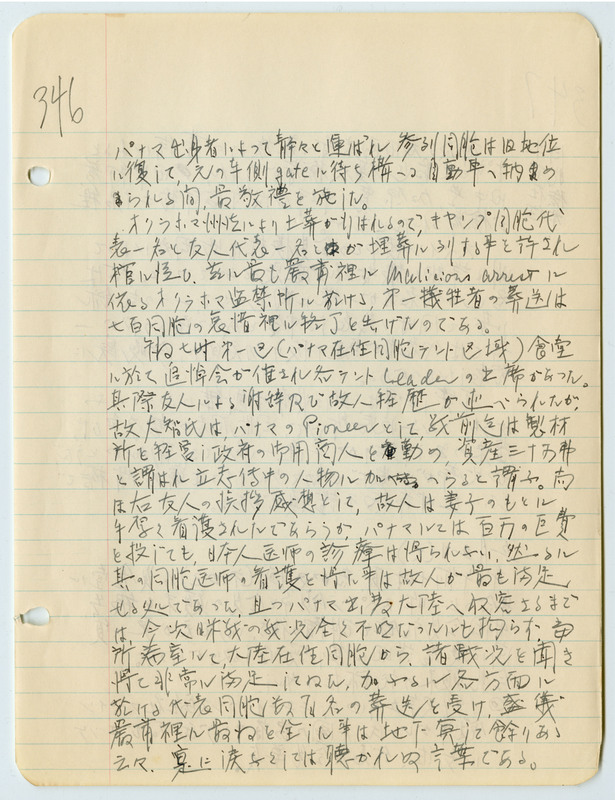 346
パナマ出身者によって静々と運ばれ 参列同胞は旧地位
に復して、元の車側gateに待ち構へる自動車へ納め
られる間、最敬禮を施した。
オクラホマ州法により土葬が行はれるので、キャンプ同胞代
表一名と友人代表一名とが埋葬に列する事を許され
棺に従ひ、茲に最も嚴肅裡にmalicious arrestに
依るオクラホマ監禁所に於ける、第一犠牲者の葬送は
七百同胞の哀惜裡に終了を告げたのである。
七時 第一区(パナマ在住同胞テント区域)食堂
に於て追悼会が催され各テントLeaderの出席があった。
其際友人による謝辞及び故人経歴が述べられたが、
故大智氏はパナマのPioneerとして戦前迄は製材
所を経営し政府の御用商人を勤め、資産三十万弗
と謂はれ立志傳中の人物に へらると謂ふ。尚
ほ右友人の挨拶感想として、故人は妻子のもとに
手厚く看護されたであらうが、パナマにては百万の巨費
を投じても、日本人医師の診療は得られない、然るに
其の同胞医師の看護を得た事は故人が最も満足
せる処であった、且つパナマ出発大陸へ収容さるまで
は、今次日米戦の戦況全く不明だったにも拘らず、当
所病室にて、大陸在住同胞から、諸戦況を聞き
得て非常に満足してゐた、加 各方面に
於ける代表同胞数百名の葬送を受け、盛儀
嚴肅裡に 全した事は地下 して餘りある
云々、実に涙なくしては聴かれぬ言葉である。